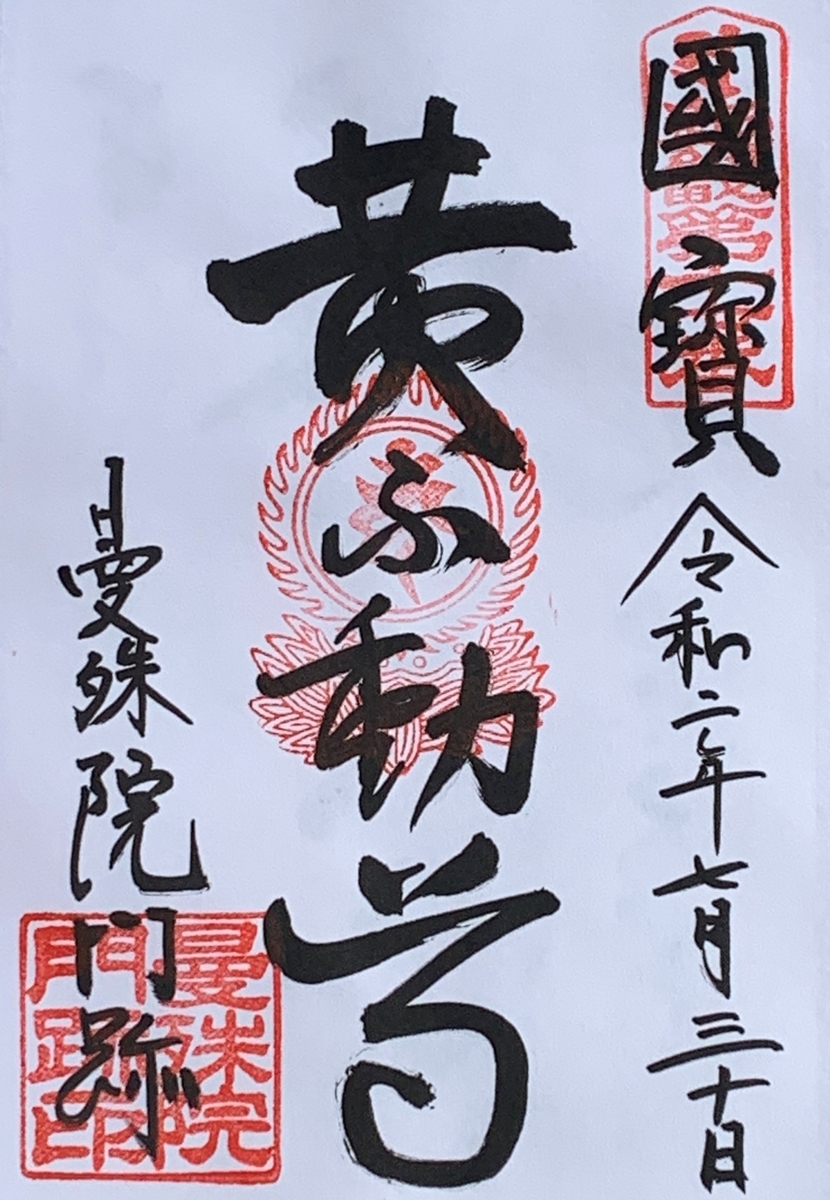 國寳 令和二年七月三十日
黄不動尊
曼殊院門跡
曼殊院
門跡印